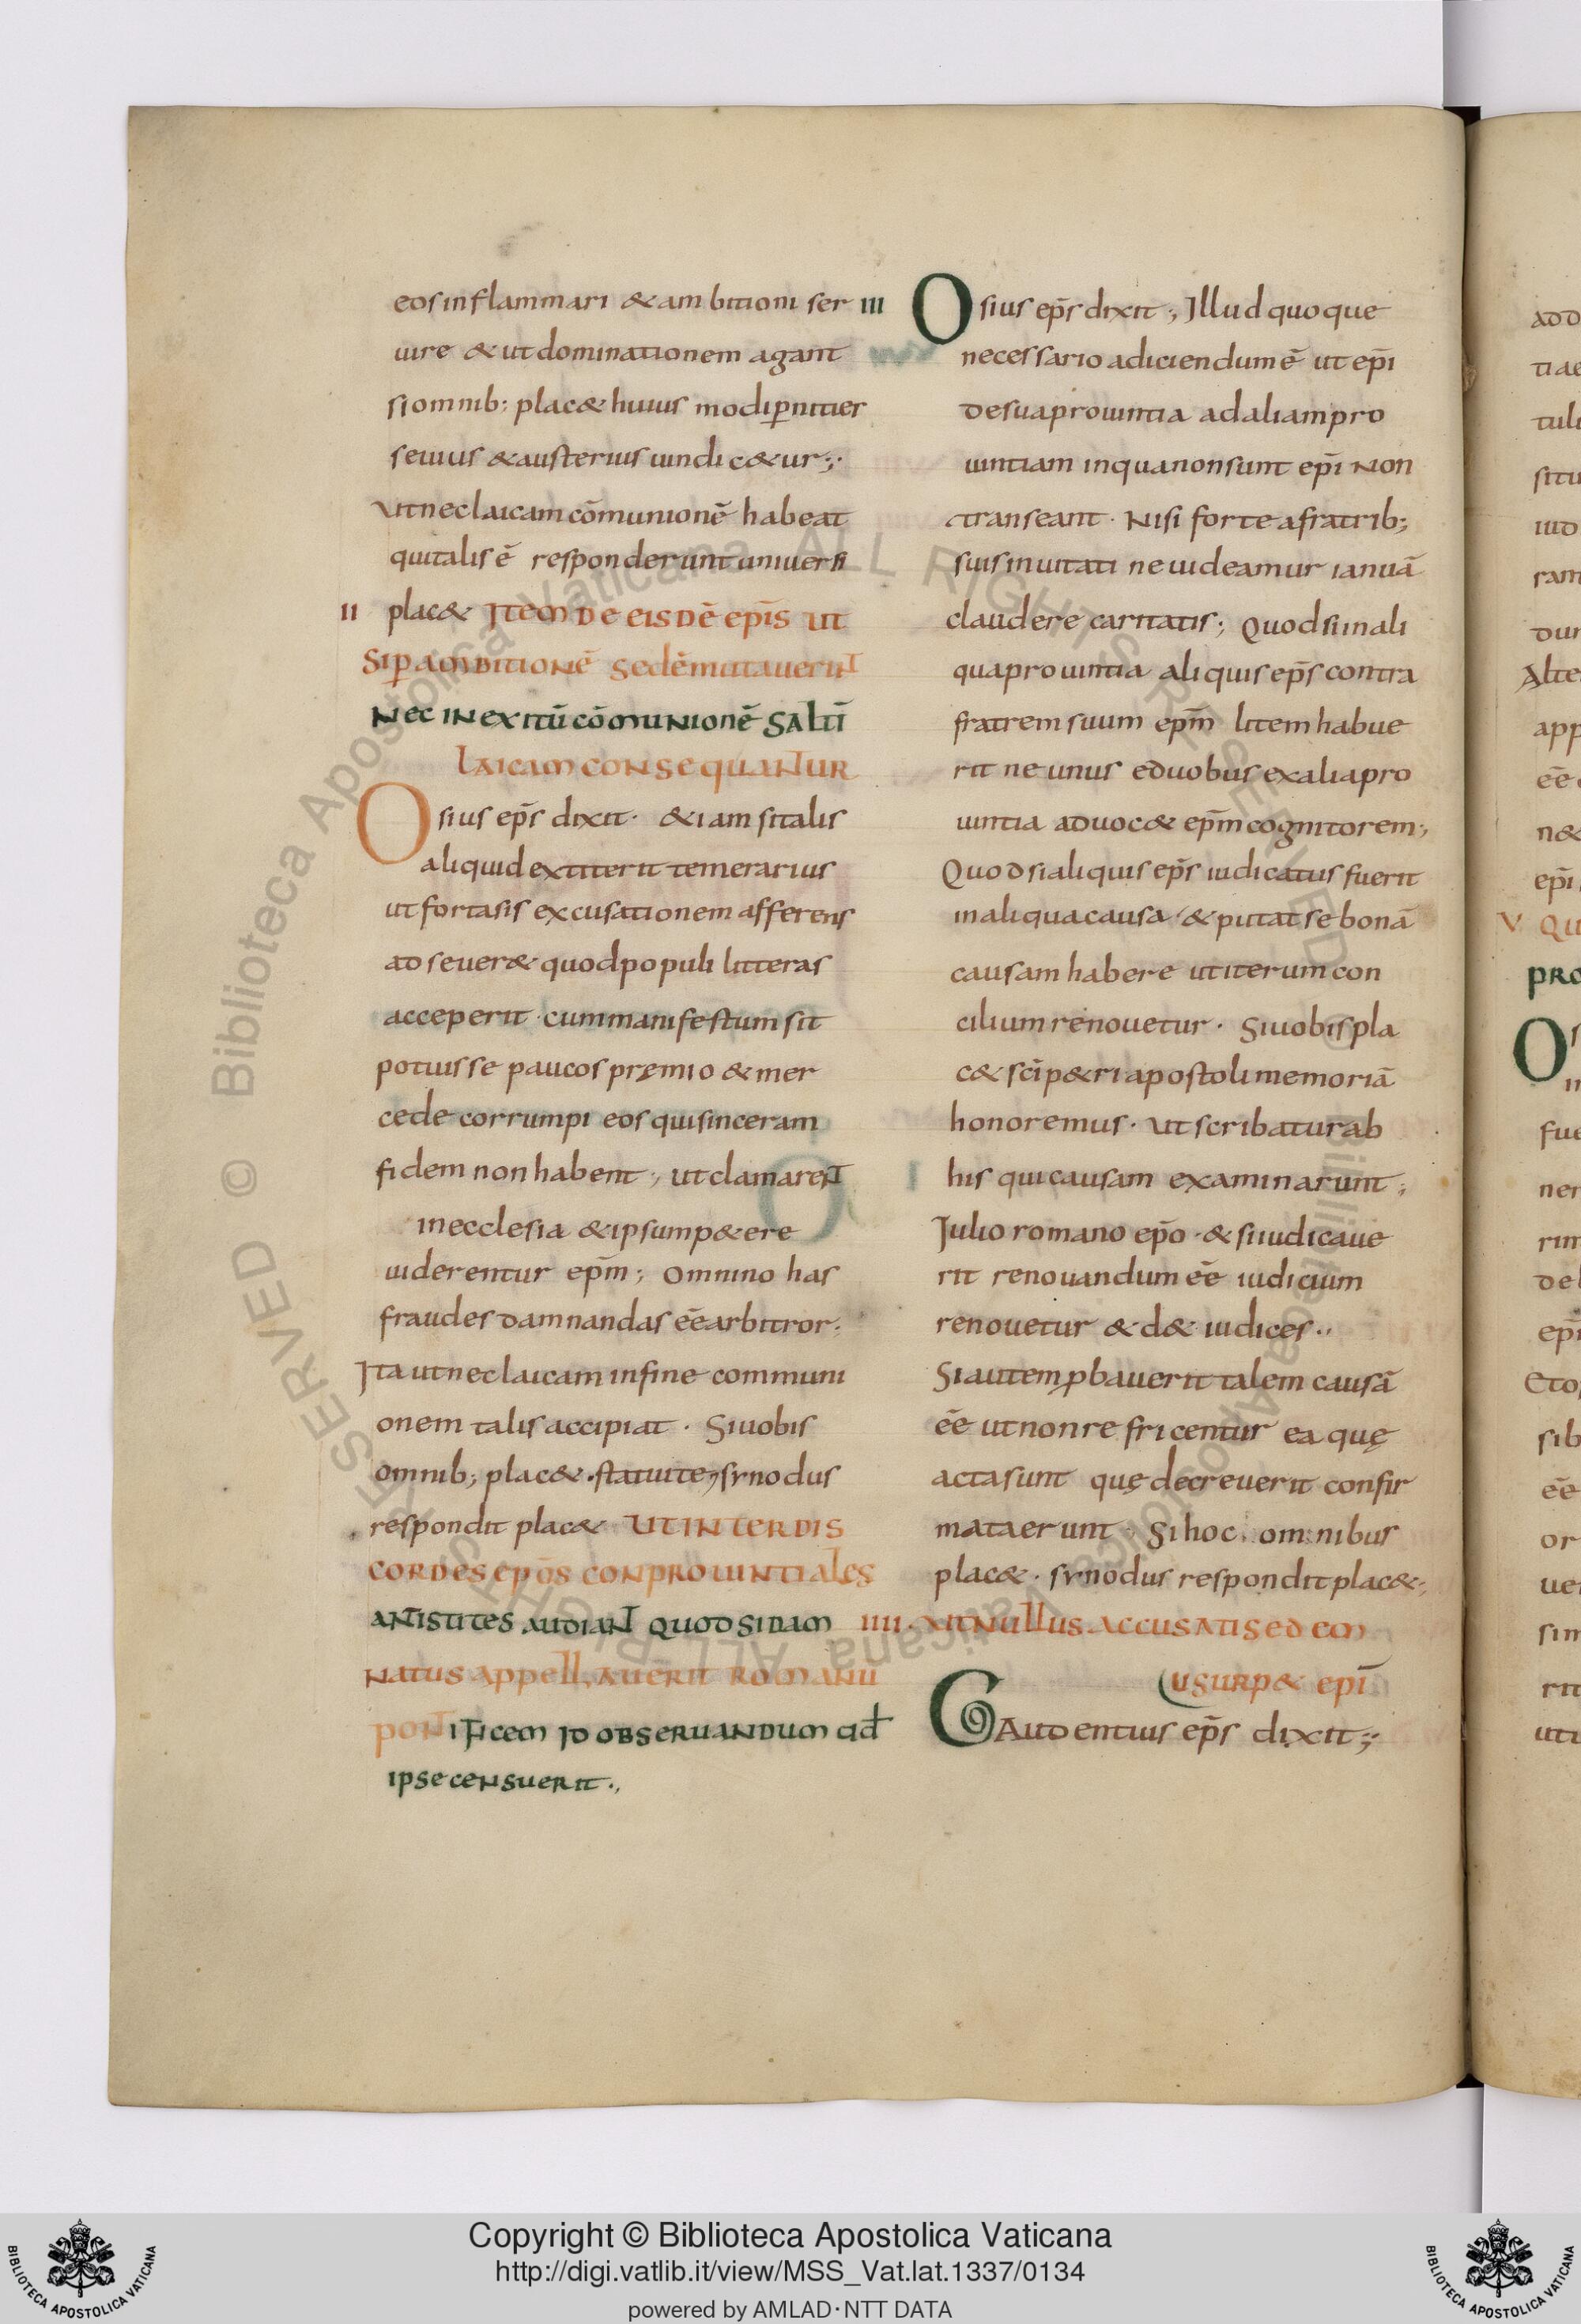 eos inflammari & ambitioni ser
uire & ut dominationem agant
si omnib: plac& huius modi p̲nitier
seuius & austerius uindic&ur;·
Ut nec laicam cōmunionē habeat
qui talis ē responderunt uniuersi
II plac& Item de eisdē ep̄is ut
si p̲ ambitionē sedē mutauerunt
nec in exitū cōmunionē saltī
laicam consequantur
Osius ep̄s dixit· &iam si talis
aliquid extiterit temerarius
ut fortasis excusationem afferens
adseuer& quod populi litteras
acceperit· cum manifestum sit
potuisse paucos pręmio & mer
cede corrumpi eos qui sinceram
fidem non habent; ut clamarent
in ecclesia & ipsum p&ere
uiderentur ep̄m; Omnino has
fraudes damnandas ēē arbitror;
Ita ut nec laicam in fine communi
onem talis accipiat· Si uobis
omnib; plac&· statuite, synodus
respondit plac& Ut inter dis
cordes ep̄os conprouintiales
antistites audiant quod si dam
natus appellauerit romanū
pontificem id obseruandum qđ
ipse censuerit·,
III Osius ep̄s dixit; Illud quoque
necessario adiciendum ē ut ep̄i
de sua prouintia ad aliam pro
uintiam in qua non sunt ep̄i non
transeant· Nisi forte a fratrib;
suis inuitati ne uideamur ianuā
claudere caritatis; Quod si in ali
qua prouintia aliquis ep̄s contra
fratrem suum ep̄m litem habue
rit ne unus e duobus ex alia pro
uintia aduoc& ep̄m cognitorem;
Quod si aliquis ep̄s iudicatus fuerit
in aliqua causa & putat se bonā
causam habere ut iterum con
cilium renouetur· Si uobis pla
c& sc̄i p&ri apostoli memoriā
honoremus· ut scribatur ab
his qui causam examinarunt;
Julio romano ep̄o· & si iudicaue
rit renouandum ēē iudicium
renouetur & d& iudices··
Si autem pbauerit talem causā
ēē ut non refricentur ea quę
acta sunt quę decreuerit confir
mata erunt· Si hoc omnibus
plac&· synodus respondit plac&;
IIII· Ut nullus accusati sedem
usurp& ep̄i
Gaudentius ep̄s dixit;·
Copyright © Biblioteca Apostolica Vaticana
http://digi.vatlib.it/view/MSS_Vat.lat.1337/0134
powered by AMLAD·NTT DATA